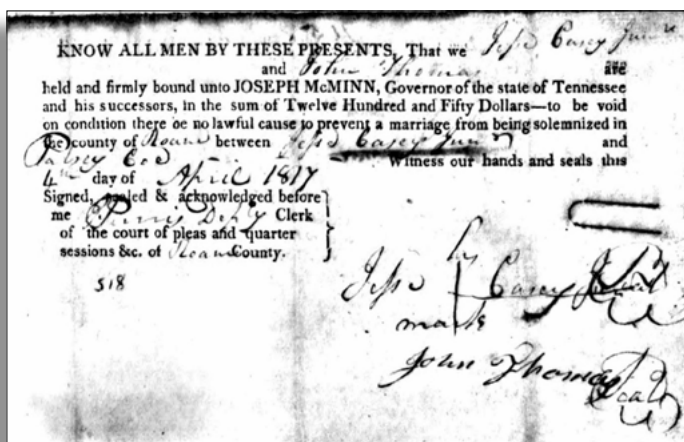 KNOW ALL MEN BY THESE PRESENTS, That we Jesse Casey Junr
and John Thomas are
held and firmly bound unto JOSEPH McMINN, Governor of the state of Tennessee
and his successors, in the sum of Twelve Hundred and Fifty Dollars—to be void
on condition there be no lawful cause to prevent a marriage from being solemnized in
the county of Roane between Jesse Casey Junr and
Patsey Witness our hands and seals this
4th day of April 1817
Signed, sealed & acknowledged before
me Clerk
of the court of pleas and quarter
sessions &c. of Roane County.
518
Jesse Casey Jr
mark
John Thomas Seal